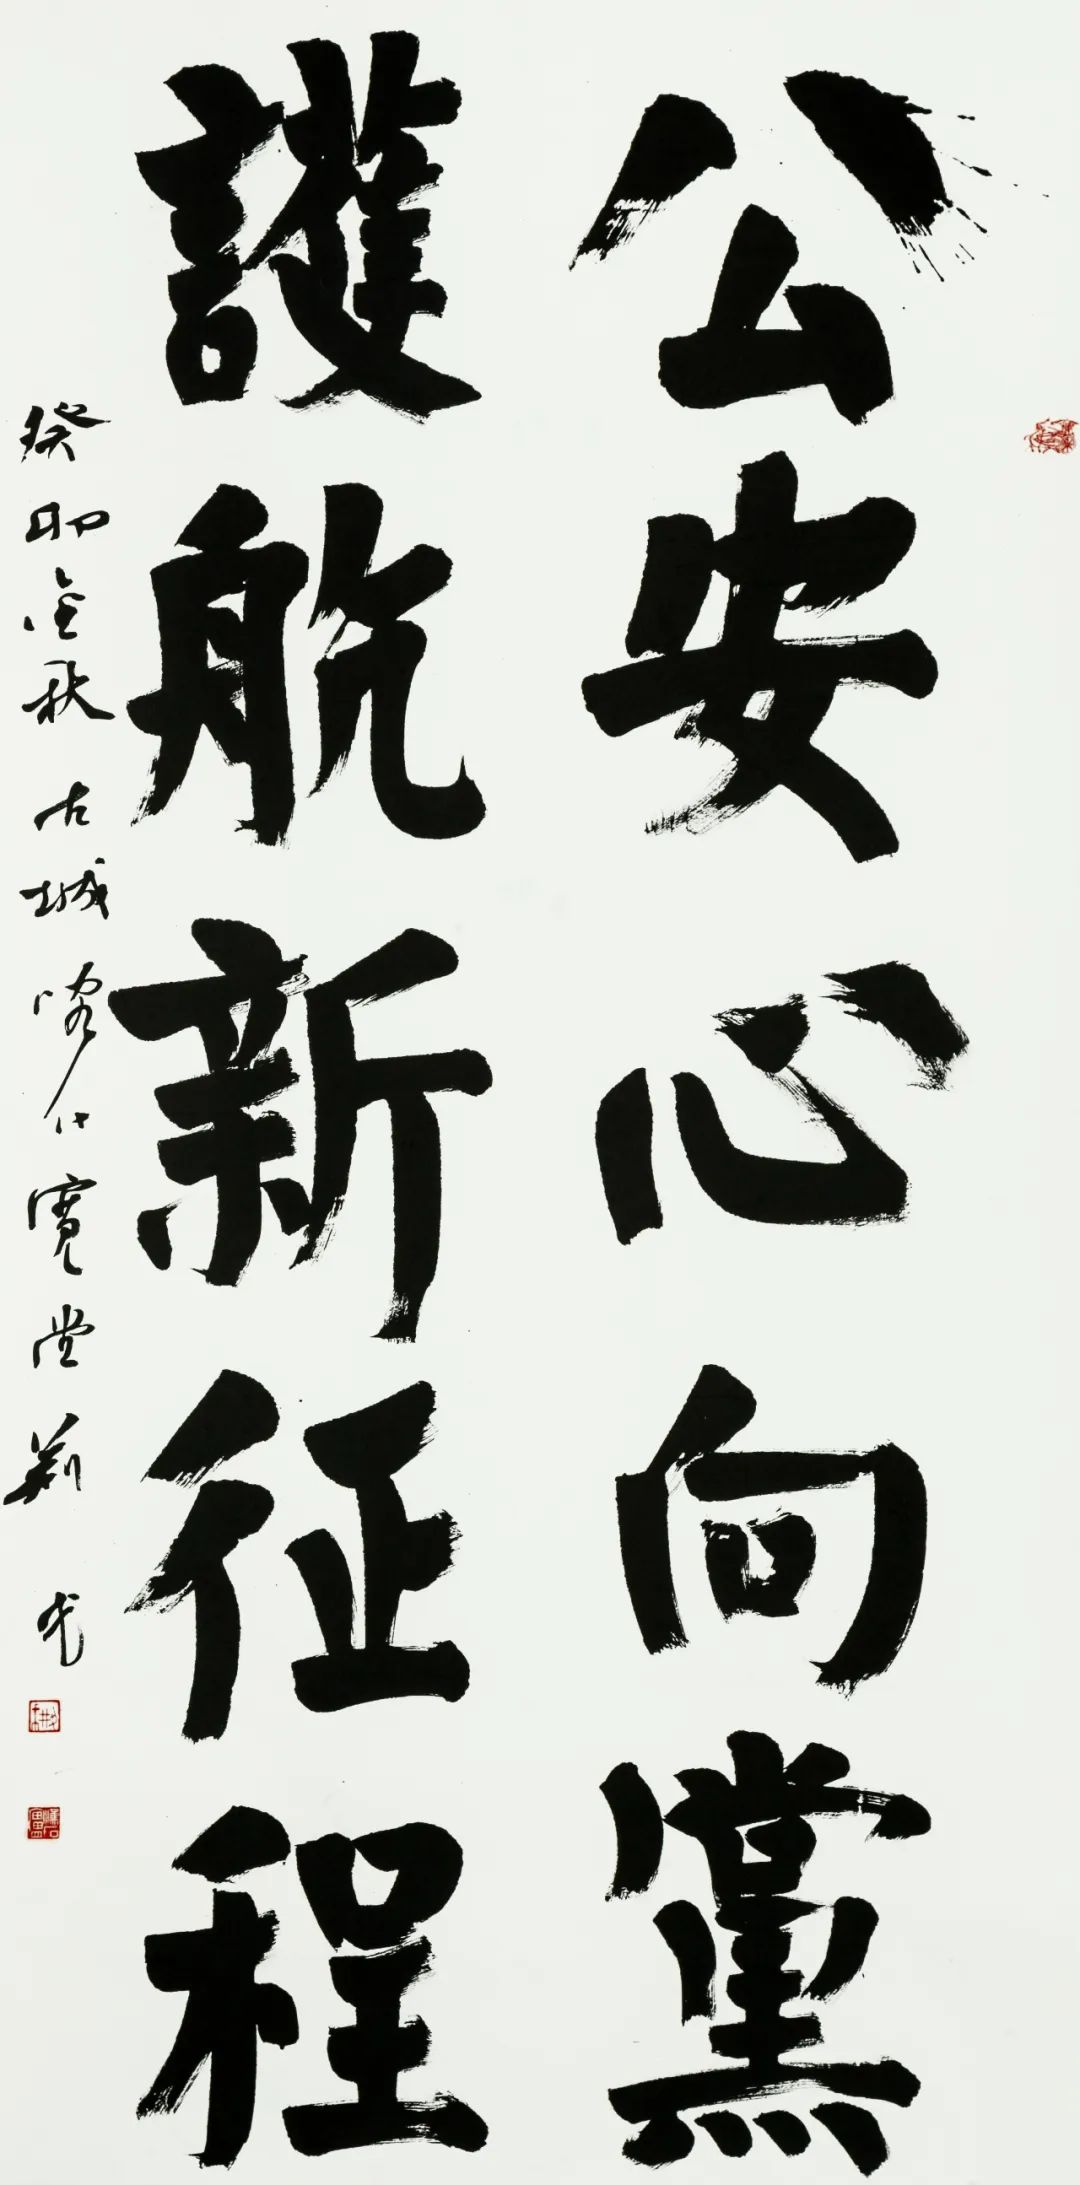 公安心向黨
護航新征程
癸卯金秋 古城 寬堂